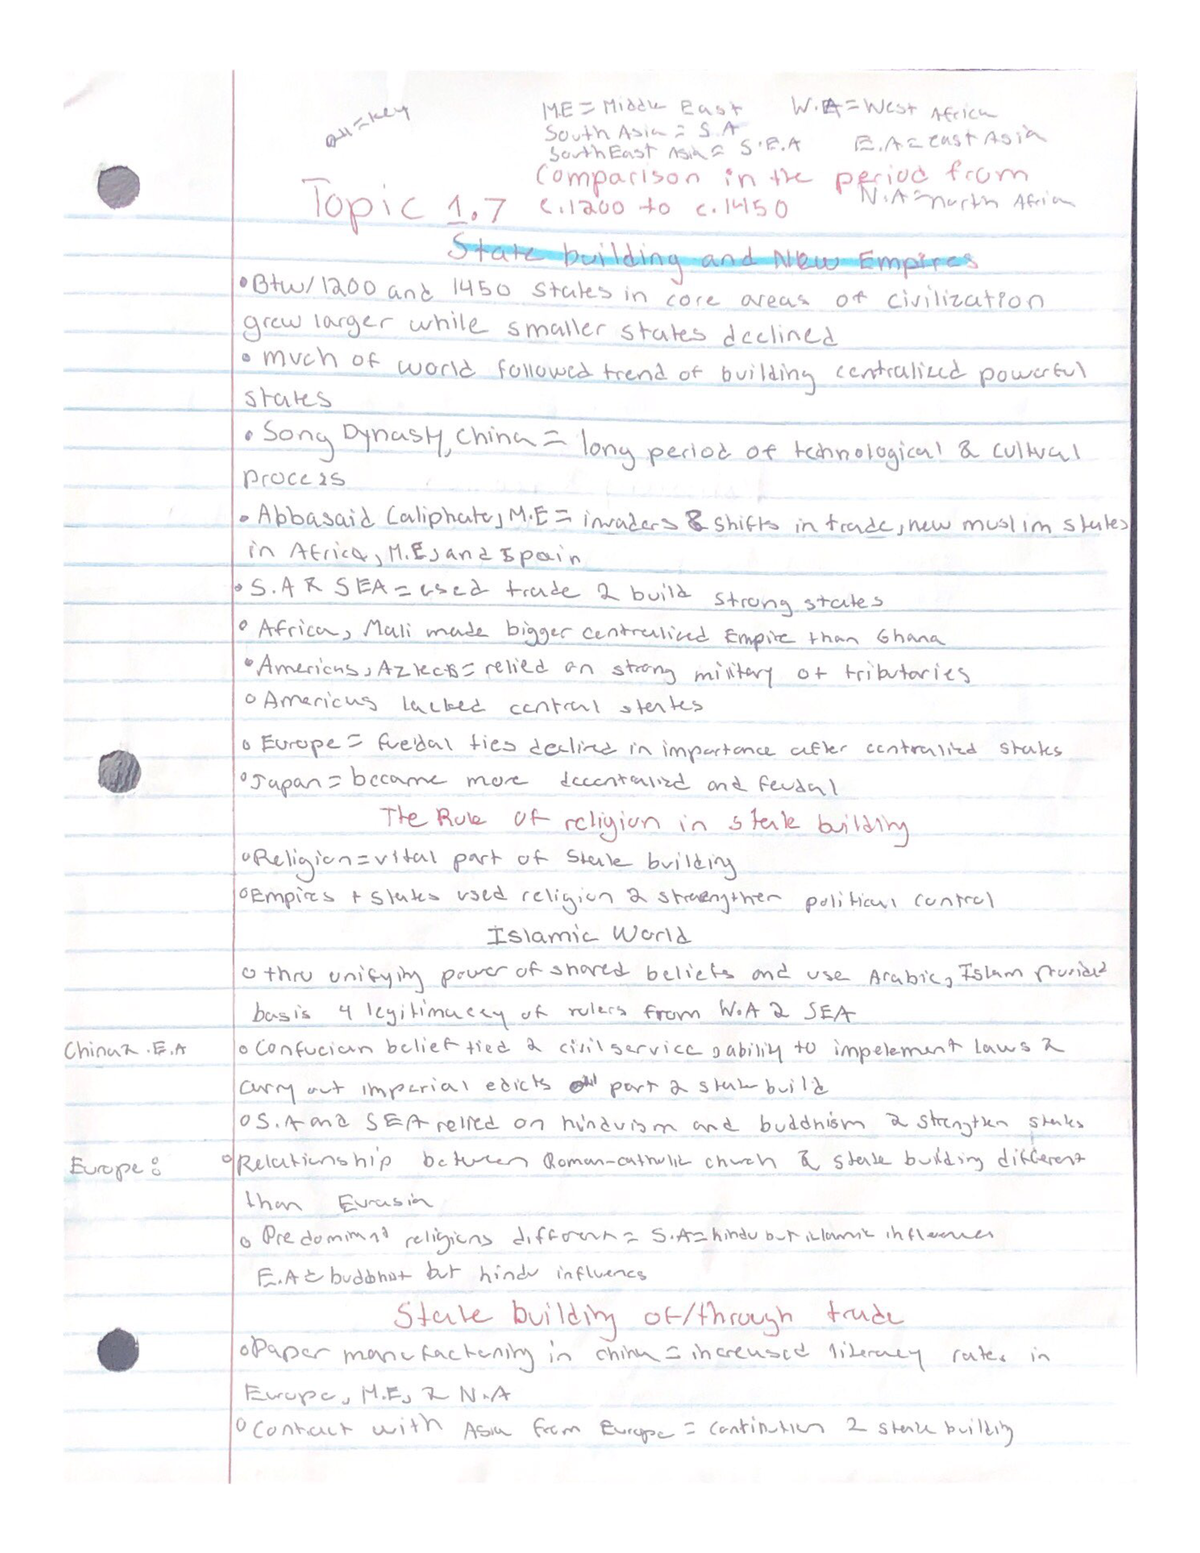 M.E = Middle East W.A = West Africa
= Key
South Asia = S.A
SouthEast Asia = S.E.A E.A = East Asia
Comparison in the period from
N.A = north Africa
Topic 1.7 c.1200 to c.1450
State building and New Empires
• Btw/1200 and 1450 states in core areas of civilization
grew larger while smaller states declined
• much of world followed trend of building centralized powerful
states
• Song Dynasty, China = long period of technological & cultural
process
• Abbasaid Caliphate, M.E = invaders & shifts in trade, new muslim states
in Africa, M.E, and Spain
• S.A & SEA = used trade 2 build strong states
• Africa, Mali made bigger centralized Empire than Ghana
• Americas, Aztecs = relied on strong military of tributaries
• Americas lacked central states
• Europe = fuedal ties declined in importance after centralized states
• Japan = became more decentralized and feudal
The Role of religion in state building
• Religion = vital part of State building
• Empires + States used religion 2 strengthen political control
Islamic World
• thru unifying power of shared beliefs and use Arabic, Islam provided
basis 4 legitimacy of rulers from W.A 2 SEA
China & E.A • Confucian belief tied 2 civil service, ability to impelement laws &
carry out imperial edicts part 2 state build
• S.A and SEA relied on hinduism and buddhism 2 strengthen states
Europe: • Relationship between Roman-catholic church & state building different
than Eurasia
• Predominant religions different = S.A = hindu but islamic influences
E.A = buddhist but hindu influences
State building of/through trade
• Paper manufacturing in china = increased literacy rates in
Europe, M.E, & N.A
• Contact with Asia from Europe = 2 state building